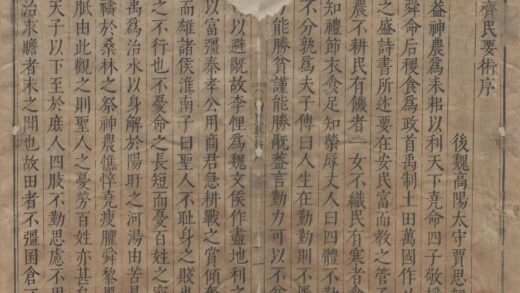 齊民要術序
後魏高陽太守賈思勰
葢神農為耒耜以利天下堯命四子敬授
舜命后稷食為政首禹制土田萬國作
之盛詩書所述要在安民富而教之管子
農不耕民有饑者一女不織民有寒者倉
知禮節衣食足知榮辱丈人曰四體不勤
不分孰為夫子傳曰人生在勤勤則不匱
能勝貧謹能勝旤葢言勤力可以不貧
以避旤故李悝為魏文侯作盡地利之
以富彊秦孝公用商君急耕戰之賞傾奪
而雄諸侯淮南子曰聖人不耻身之賤也
之不行也不憂命之長短而憂百姓之窮
禹為治水以身解於陽盱之河湯由苦旱
禱於桑林之祭神農憔悴堯瘦臞舜黎黑
胝由此觀之則聖人之憂勞百姓亦甚矣
天子以下至於庶人四肢不勤思慮不用
治求贍者未之聞也故田者不彊囷倉不